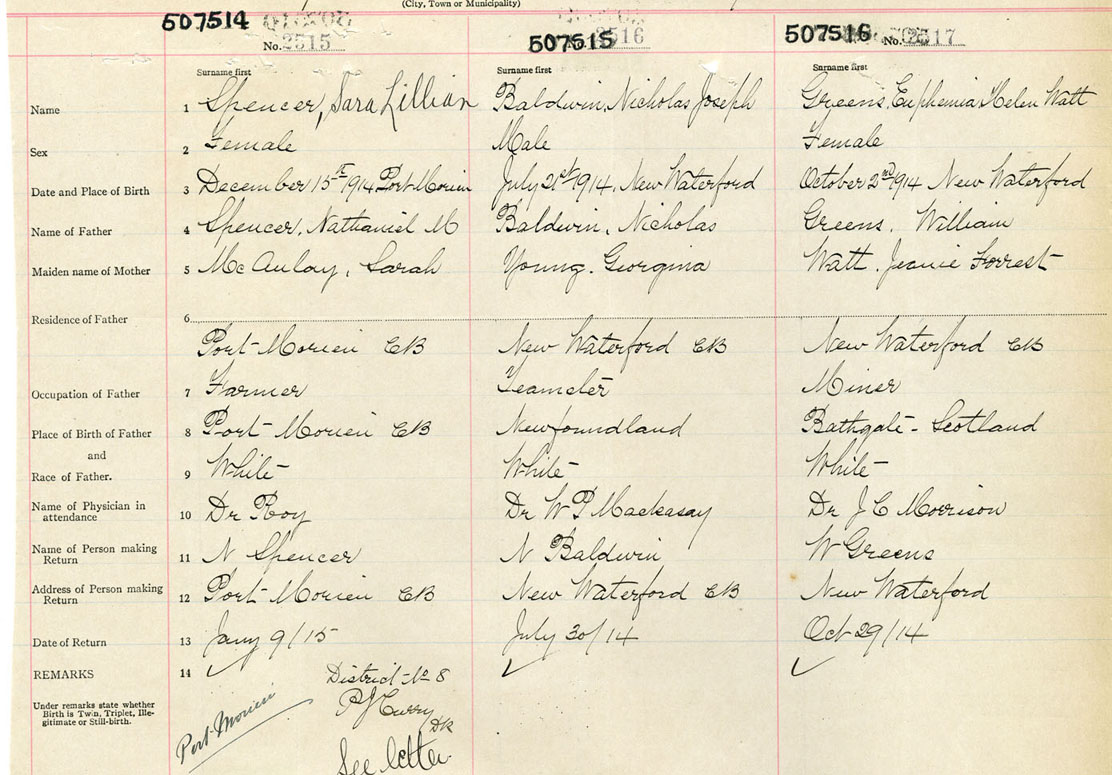 (City, Town or Municipality)
507514 No. 2515 507515 No. 2516 507516 No. 2517
Surname first Surname first Surname first
Name 1 Spencer, Sara Lillian Baldwin, Nicholas Joseph Greens, Euphemia Helen Watt
Sex 2 Female Male Female
Date and Place of Birth 3 December 15th 1914 Port Morien July 21st 1914, New Waterford October 2nd 1914 New Waterford
Name of Father 4 Spencer, Nathaniel M Baldwin, Nicholas Greens, William
Maiden name of Mother 5 McAulay, Sarah Young, Georgina Watt, Jeanie Forrest
Residence of Father 6
Port Morien CB New Waterford CB New Waterford CB
Occupation of Father 7 Farmer Teamster Miner
Place of Birth of Father 8 Port Morien CB Newfoundland Bathgate - Scotland
and
Race of Father. 9 White White White
Name of Physician in
attendance 10 Dr Roy Dr W P Mackasay Dr J C Morrison
Name of Person making
Return 11 N Spencer N Baldwin W Greens
Address of Person making
Return 12 Port Morien CB New Waterford CB New Waterford
Date of Return 13 Jany 9/15 July 30/14 Oct 29/14
REMARKS 14 ✓ District No 8 ✓ ✓
Under remarks state whether
Birth is Twin, Triplet, Ille-
gitimate or Still-birth.
Port Morien
P J Curry
DR
See letter